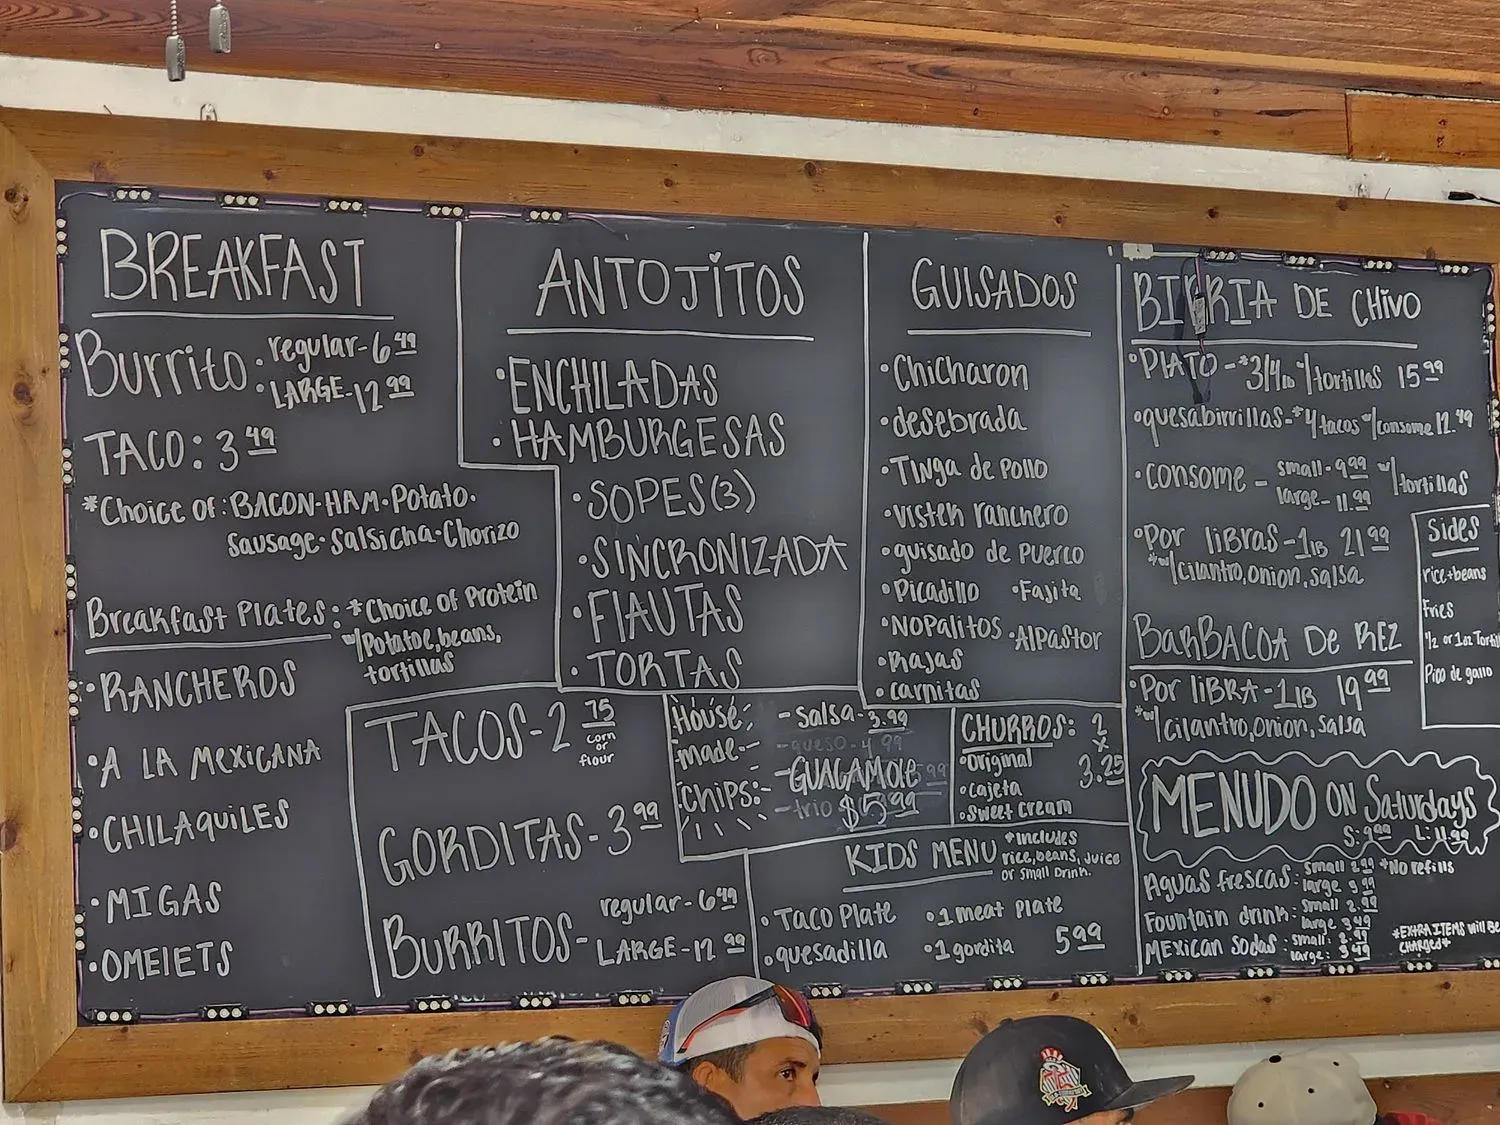 BREAKFAST
Burrito • regular - 6 49
• LARGE - 12 99
TACO: 3 49
*Choice of: BACON • HAM • Potato •
Sausage • Salsicha • Chorizo
Breakfast Plates: *Choice of Protein
w/ Potatoe, beans,
tortillas
• RANCHEROS
• A LA MEXICANA
• CHILAQUILES
• MIGAS
• OMELETS
ANTOJITOS
• ENCHILADAS
• HAMBURGESAS
• SOPES (3)
• SINCRONIZADA
• FLAUTAS
• TORTAS
TACOS - 2 75
corn
or
flour
GORDITAS - 3 99
BURRITOS - regular - 6 49
LARGE - 12 99
House
made
chips:
- Salsa - 3.99
- queso - 4 99
- GUACAMOLE
- trio $5.99
GUISADOS
• Chicharon
• desebrada
• Tinga de Pollo
• Visten ranchero
• guisado de Puerco
• Picadillo • Fajita
• Nopalitos • AlPastor
• Rajas
• Carnitas
CHURROS: 2
x
3.25
• Original
• cajeta
• Sweet Cream
KIDS MENU *includes
rice, beans, juice
or small Drink.
• Taco Plate • 1 meat Plate
• quesadilla • 1 gordita 5 99
BIRRIA DE CHIVO
• PLATO - *3/4 lb w/ tortillas 15 99
• quesabirrillas - *4 tacos w/ consome 12.49
• CONSOME - small - 9.99 w/ tortillas
large - 11.99
• Por libras - 1 LB 21 99
*w/ cilantro, onion, salsa
BARBACOA DE REZ
• Por LIBRA - 1 LB 19 99
*w/ cilantro, onion, salsa
Sides
rice + beans
Fries
Pico de gallo
MENUDO ON Saturdays
S: 9.99 L: 11.99
Aguas frescas: small 2 99 *No refills
large
Fountain drink: small 2.99
large 3 49
Mexican Sodas: small:
large: 3 49
*EXTRA ITEMS will Be
CHARGED*